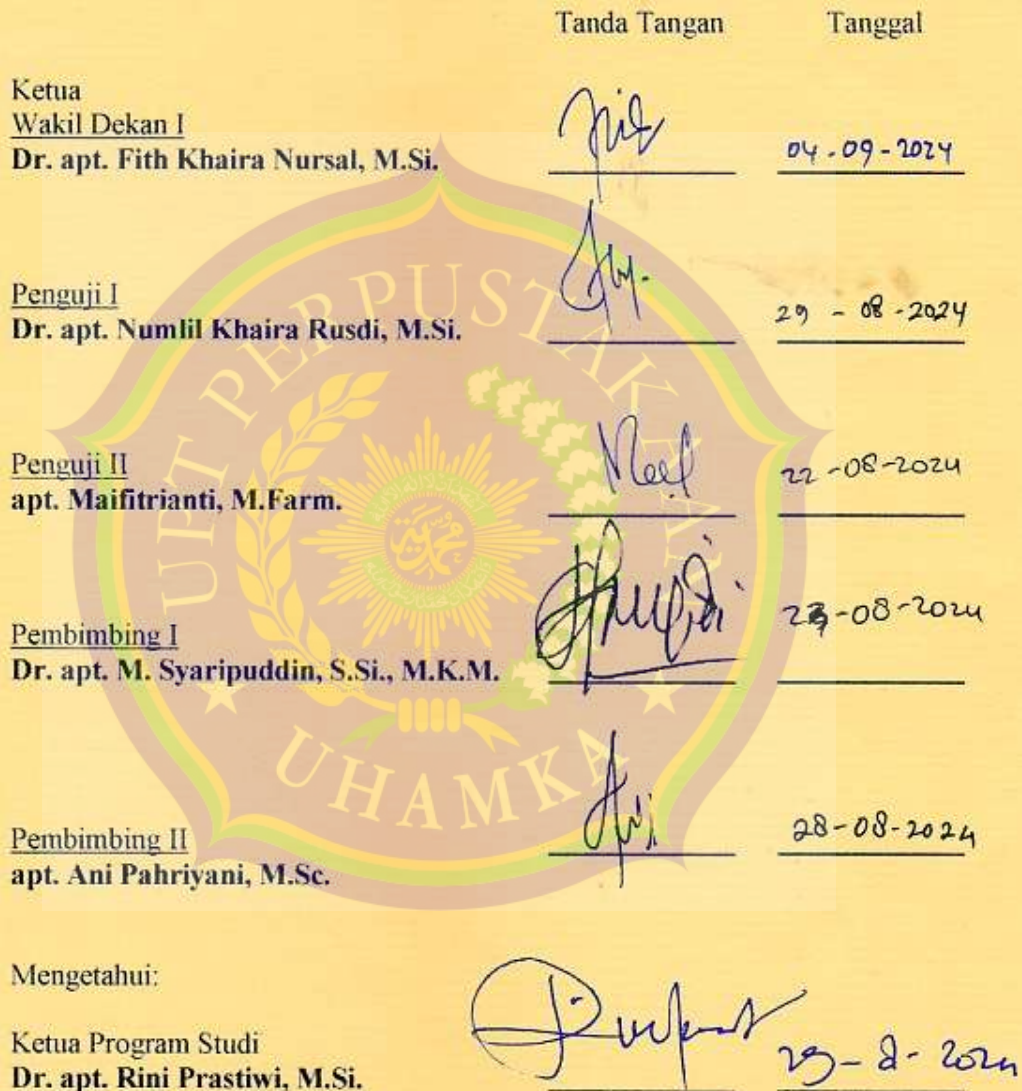 Tanda Tangan Tanggal
Ketua
Wakil Dekan I
Dr. apt. Fith Khaira Nursal, M.Si. 04-09-2024
Penguji I
Dr. apt. Numlil Khaira Rusdi, M.Si. 29 - 08 - 2024
Penguji II
apt. Maifitrianti, M.Farm. 22-08-2024
Pembimbing I
Dr. apt. M. Syaripuddin, S.Si., M.K.M. 23-08-2024
Pembimbing II
apt. Ani Pahriyani, M.Sc. 28-08-2024
Mengetahui:
Ketua Program Studi
Dr. apt. Rini Prastiwi, M.Si. 29-8-2024
UPT PERPUSTAKAAN
UHAMKA